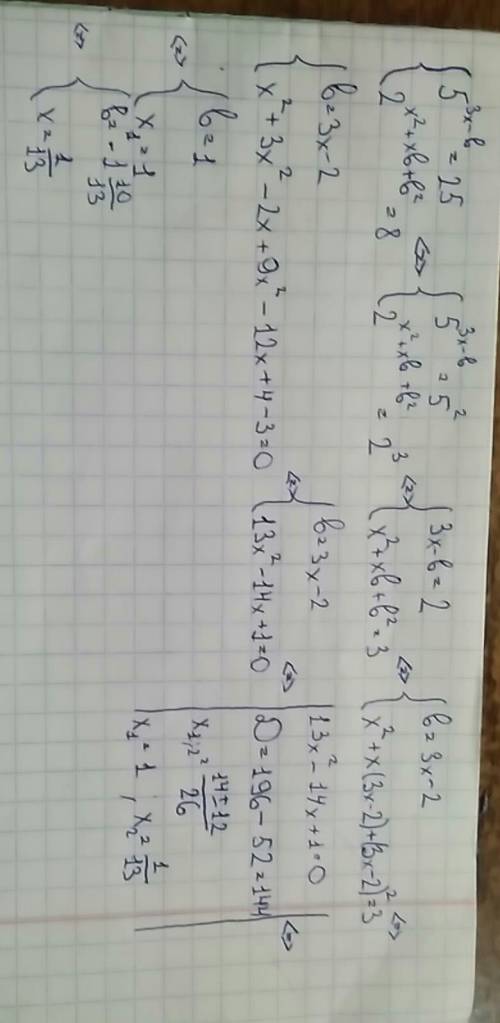 { 5^(3x-b) = 25
{ 2^(x²+xb+b²) = 8 <=> { 5^(3x-b) = 5²
{ 2^(x²+xb+b²) = 2³ <=> { 3x-b=2
{ x²+xb+b²=3 <=> { b=3x-2
{ x²+x(3x-2)+(3x-2)²=3 <=>
{ b=3x-2
{ x²+3x²-2x+9x²-12x+4-3=0 <=> { b=3x-2
{ 13x²-14x+1=0 <=>
13x²-14x+1=0
D=196-52=144
x₁,₂=(14±12)/26
x₁=1, x₂=1/13
<=>
<=> { b=1
{ x₁=1
<=> { b=-1 10/13
{ x=1/13